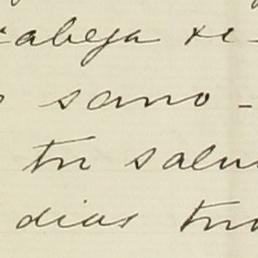 cabeza re-
sano -
tu salu
dias tuv